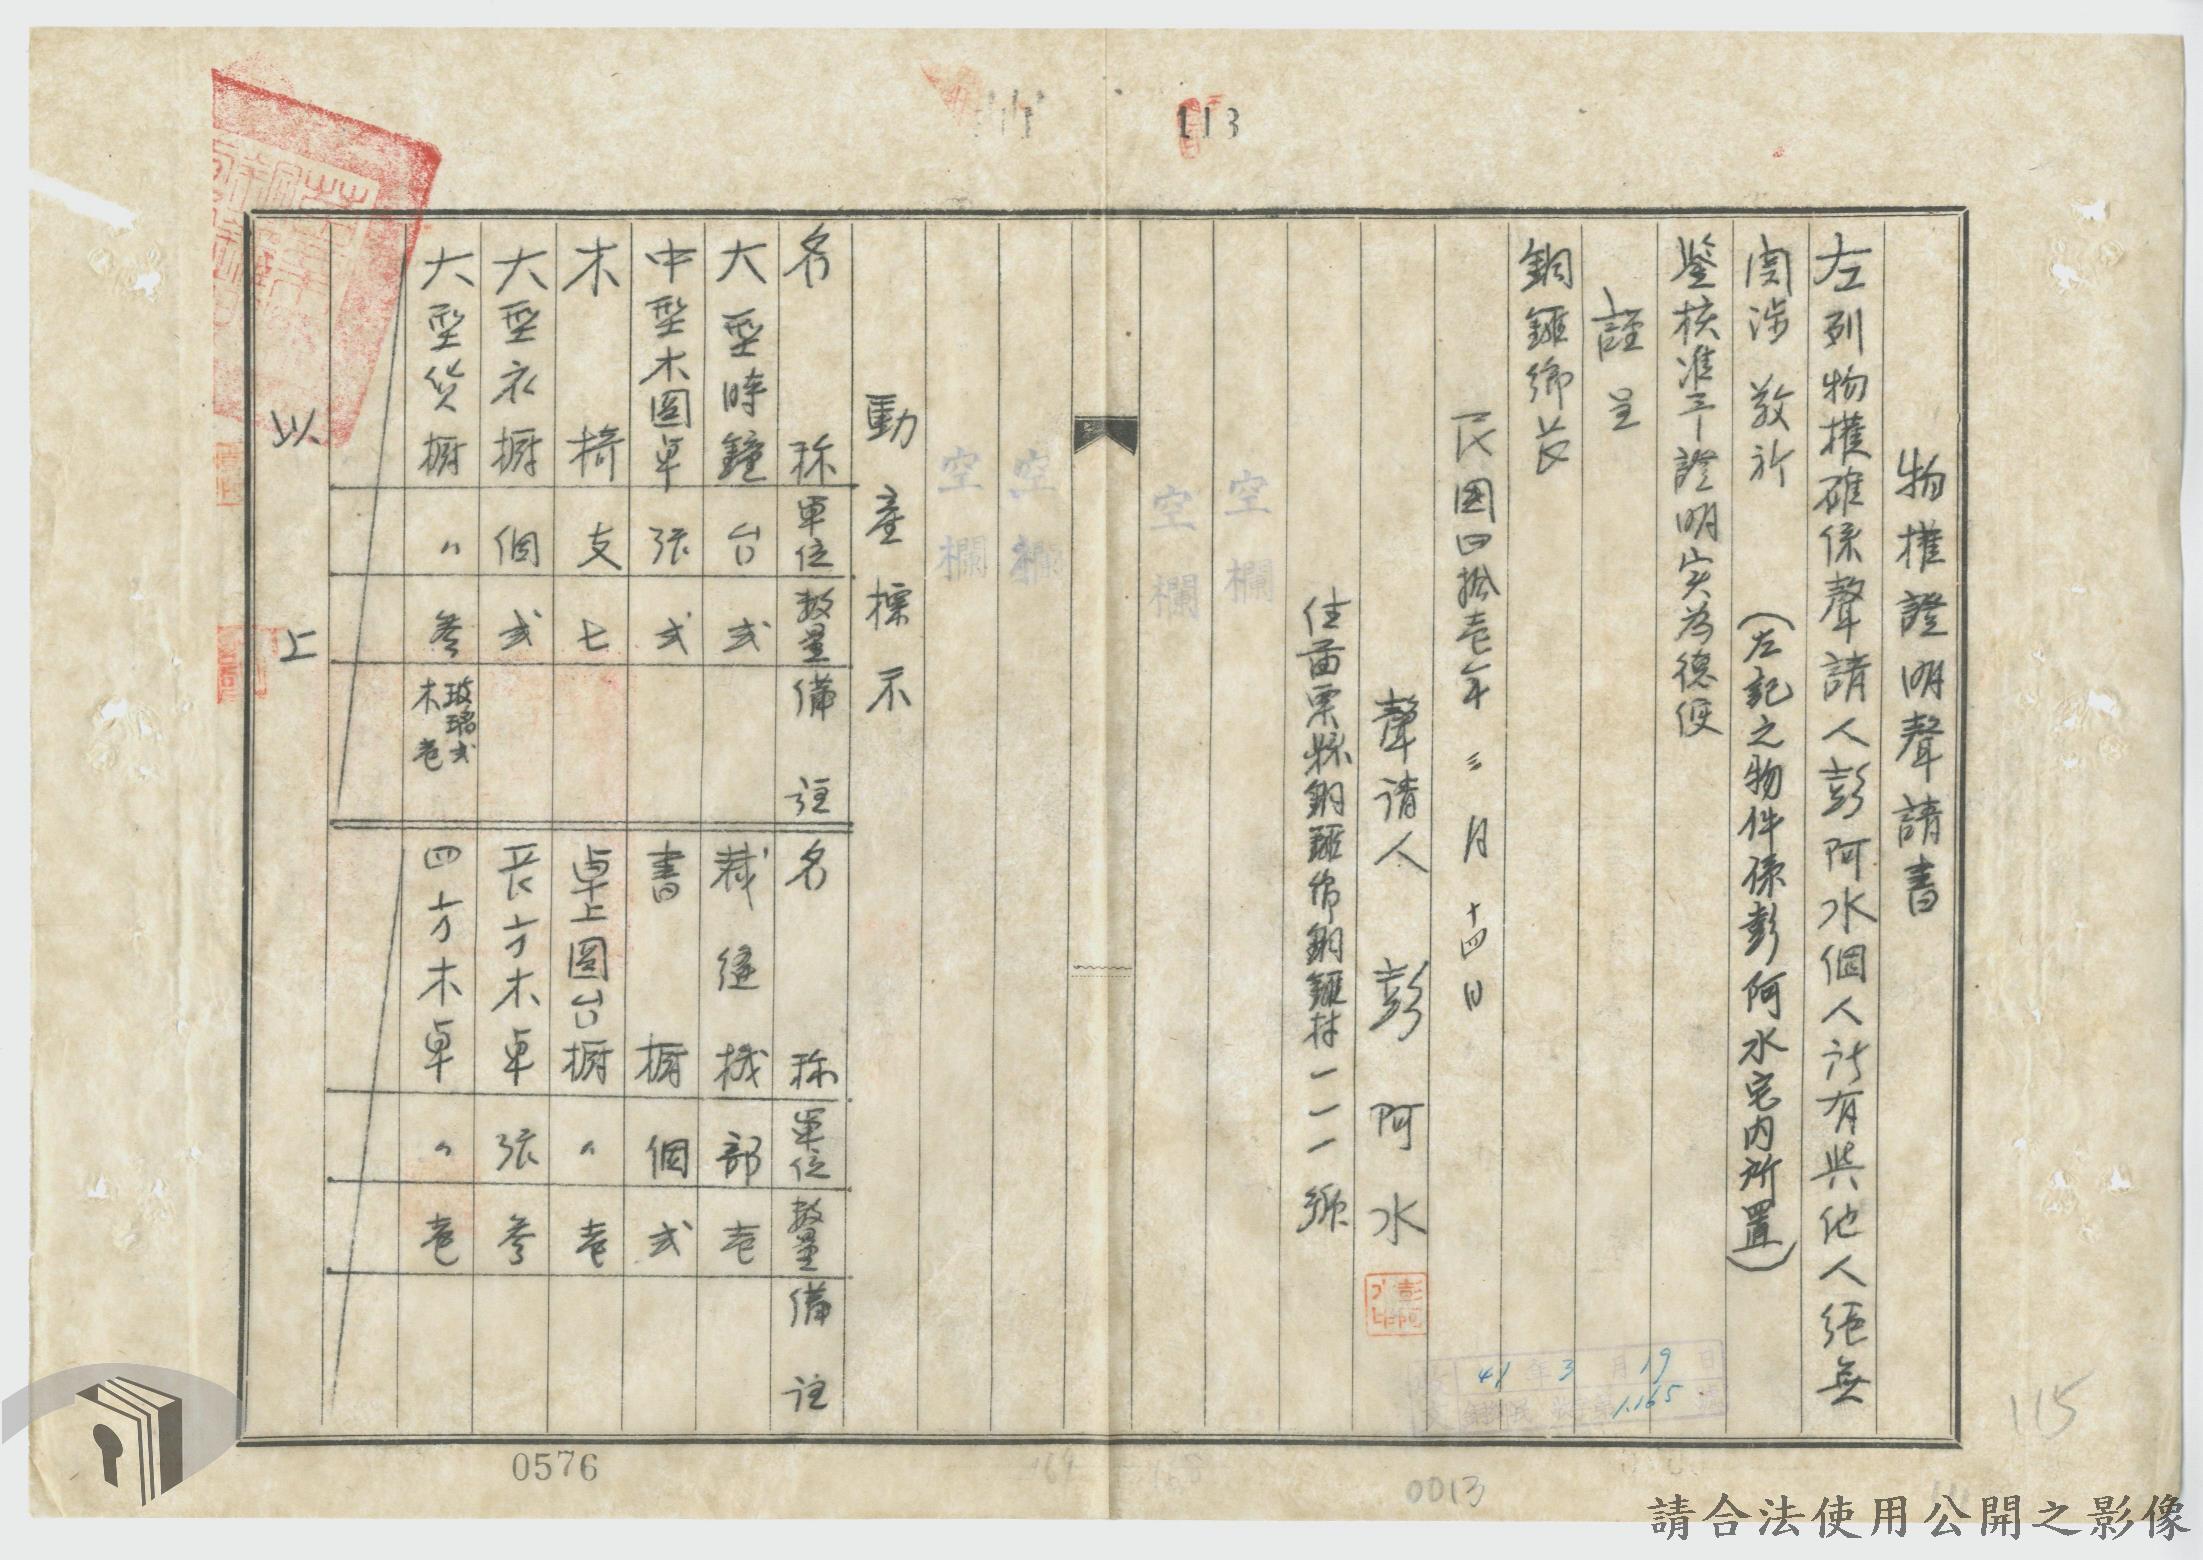 113
物權證明聲請書
左列物權確係聲請人彭阿水個人所有與他人絕無
関涉 敬祈 (左記之物件係彭阿水宅内所置)
鉴核准予證明实為德便
謹呈
銅鑼鄉長
民国四拾壱年三月十四日
聲请人 彭阿水
彭阿水
住苗栗縣銅鑼鄉銅鑼村一一一號
空欄
空欄
空欄
空欄
動產標示
名称 單位 数量 備註
大型時鐘 台 弐
中型木圆卓 張 弐
木椅 支 七
大型衣橱 個 弐
大型货橱 〃 参 玻璃弐 木壱
名称 單位 数量 備註
裁縫機 部 壱
書橱 個 弐
卓上圆台橱 〃 壱
長方木卓 張 参
四方木卓 〃 壱
以上
41年3月19日
1165
0576
0013
115
請合法使用公開之影像